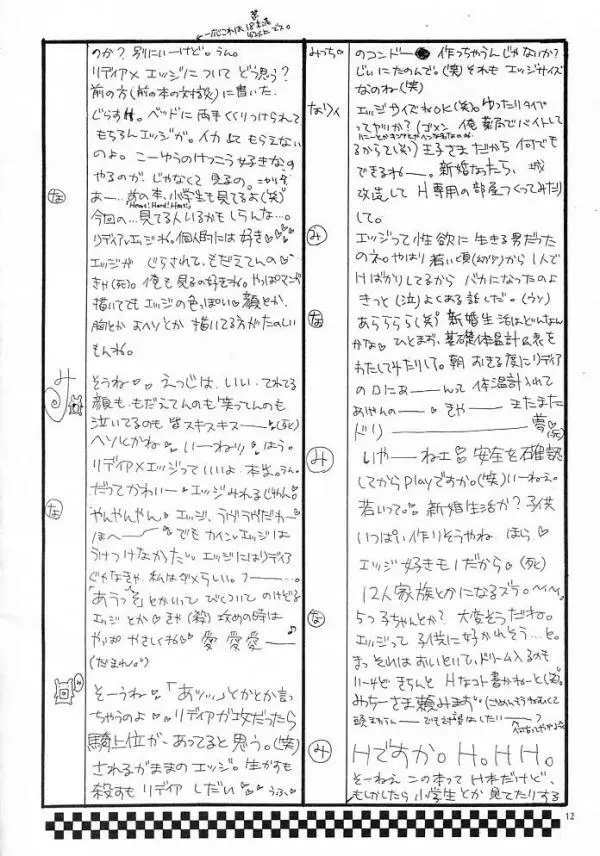 のか？別にいーけど。うん。
リディア×エッジについてどう思う？
前の方(前の本の対談)に書いた
もちろんエッジが。イカしてもらえない
のよ。こーゆうのけっこう好きなの
やるのが、じゃなくて見るの。
な
あー…前の本、小学生も見てるよ(笑)
今回の…見てる人いるかもしらんな…。
リディア×エッジね。個人的には好き
エッジが
きゃ(死)。俺も見るの好きね。やっぱマンガ
描いてでもエッジの色っぽい顔とか、
胸とかおヘソとか描いてる方がたのしい
もんね。
み
そうね えっじは、いい。てれてる
顔も、もだえてんのも笑ってんのも
泣いてるのも皆スキスキスー(死)
ヘソとかね。いーねェ ほう。
リディア×エッジっていいよ、本当。うん。
だってかわいーエッジみれるじゃん。
な
やんやんやん エッジ、
ほへー でもカイン×エッジは
うけつけなかったし。エッジにはリディア
じゃなきゃ、私はダメらしい。フー…。
エッジとか きゃ(殺)攻めの時は
やっぱやさしくね 愛愛愛ー
(だまれ。)
み
そーうね 「あッッッ」とかとか言っ
ちゃうのよ リディアが攻だったら
騎上位が、あってると思う。(笑)
されるがままのエッジ。生かすも
殺すもリディアしだい うふ
みっち。
のコンドー● 作っちゃうんじゃないか？
じいにたのんで。(笑)それもエッジサイズ
なのね(笑)
エッジサイズねOK(笑)。ゆったりタイプ
ってヤツか？(ゴメン 俺薬局でバイトして
るからて(笑)王子さまだから何でも
できるねー。新婚なったら、城
改造してH専用の部屋つくってみたり
して。
み
エッジって性欲に生きる男だった
のネ。
きっと(泣)よくある話しだ。(ウン)
な
あらららら(笑)新婚生活はどんなん
かな ひとまず、基礎体温計&表を
わたしてみたりして。朝おきる度にリディア
の口にあーんって体温計入れて
きゃー またまた
ドリー夢(死)
み
いやーねェ 安全を確認
してからplayですか。(笑)いーねぇ。
若いって。新婚生活か？子供
いっぱい作りそうやね ほら
エッジ好きモノだから(死)
12人家族とかになるズラ。へへ、
な
5つ子ちゃんとか？大変そうだねェ。
エッジって子供に好かれそう…と。
まっそれはおいといて、ドリーム入るのも
いーけどきちんとHなコト書かねーと(笑)。
みちーさま頼みます。
み
Hですか。H。HH。
そーねえ この本ってH本だけど、
もしかしたら小学生とか見てたりする
12